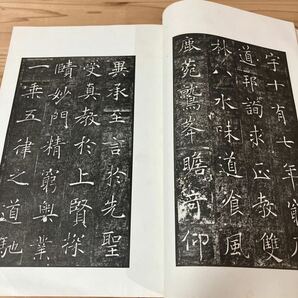 宇十有七年窮歷
道邦詢求正教雙
林八水味道飡風
鹿菀鷲峯瞻奇仰
異承至言於先聖
受真教於上賢探
賾妙門精窮奧業
一乘五律之道馳